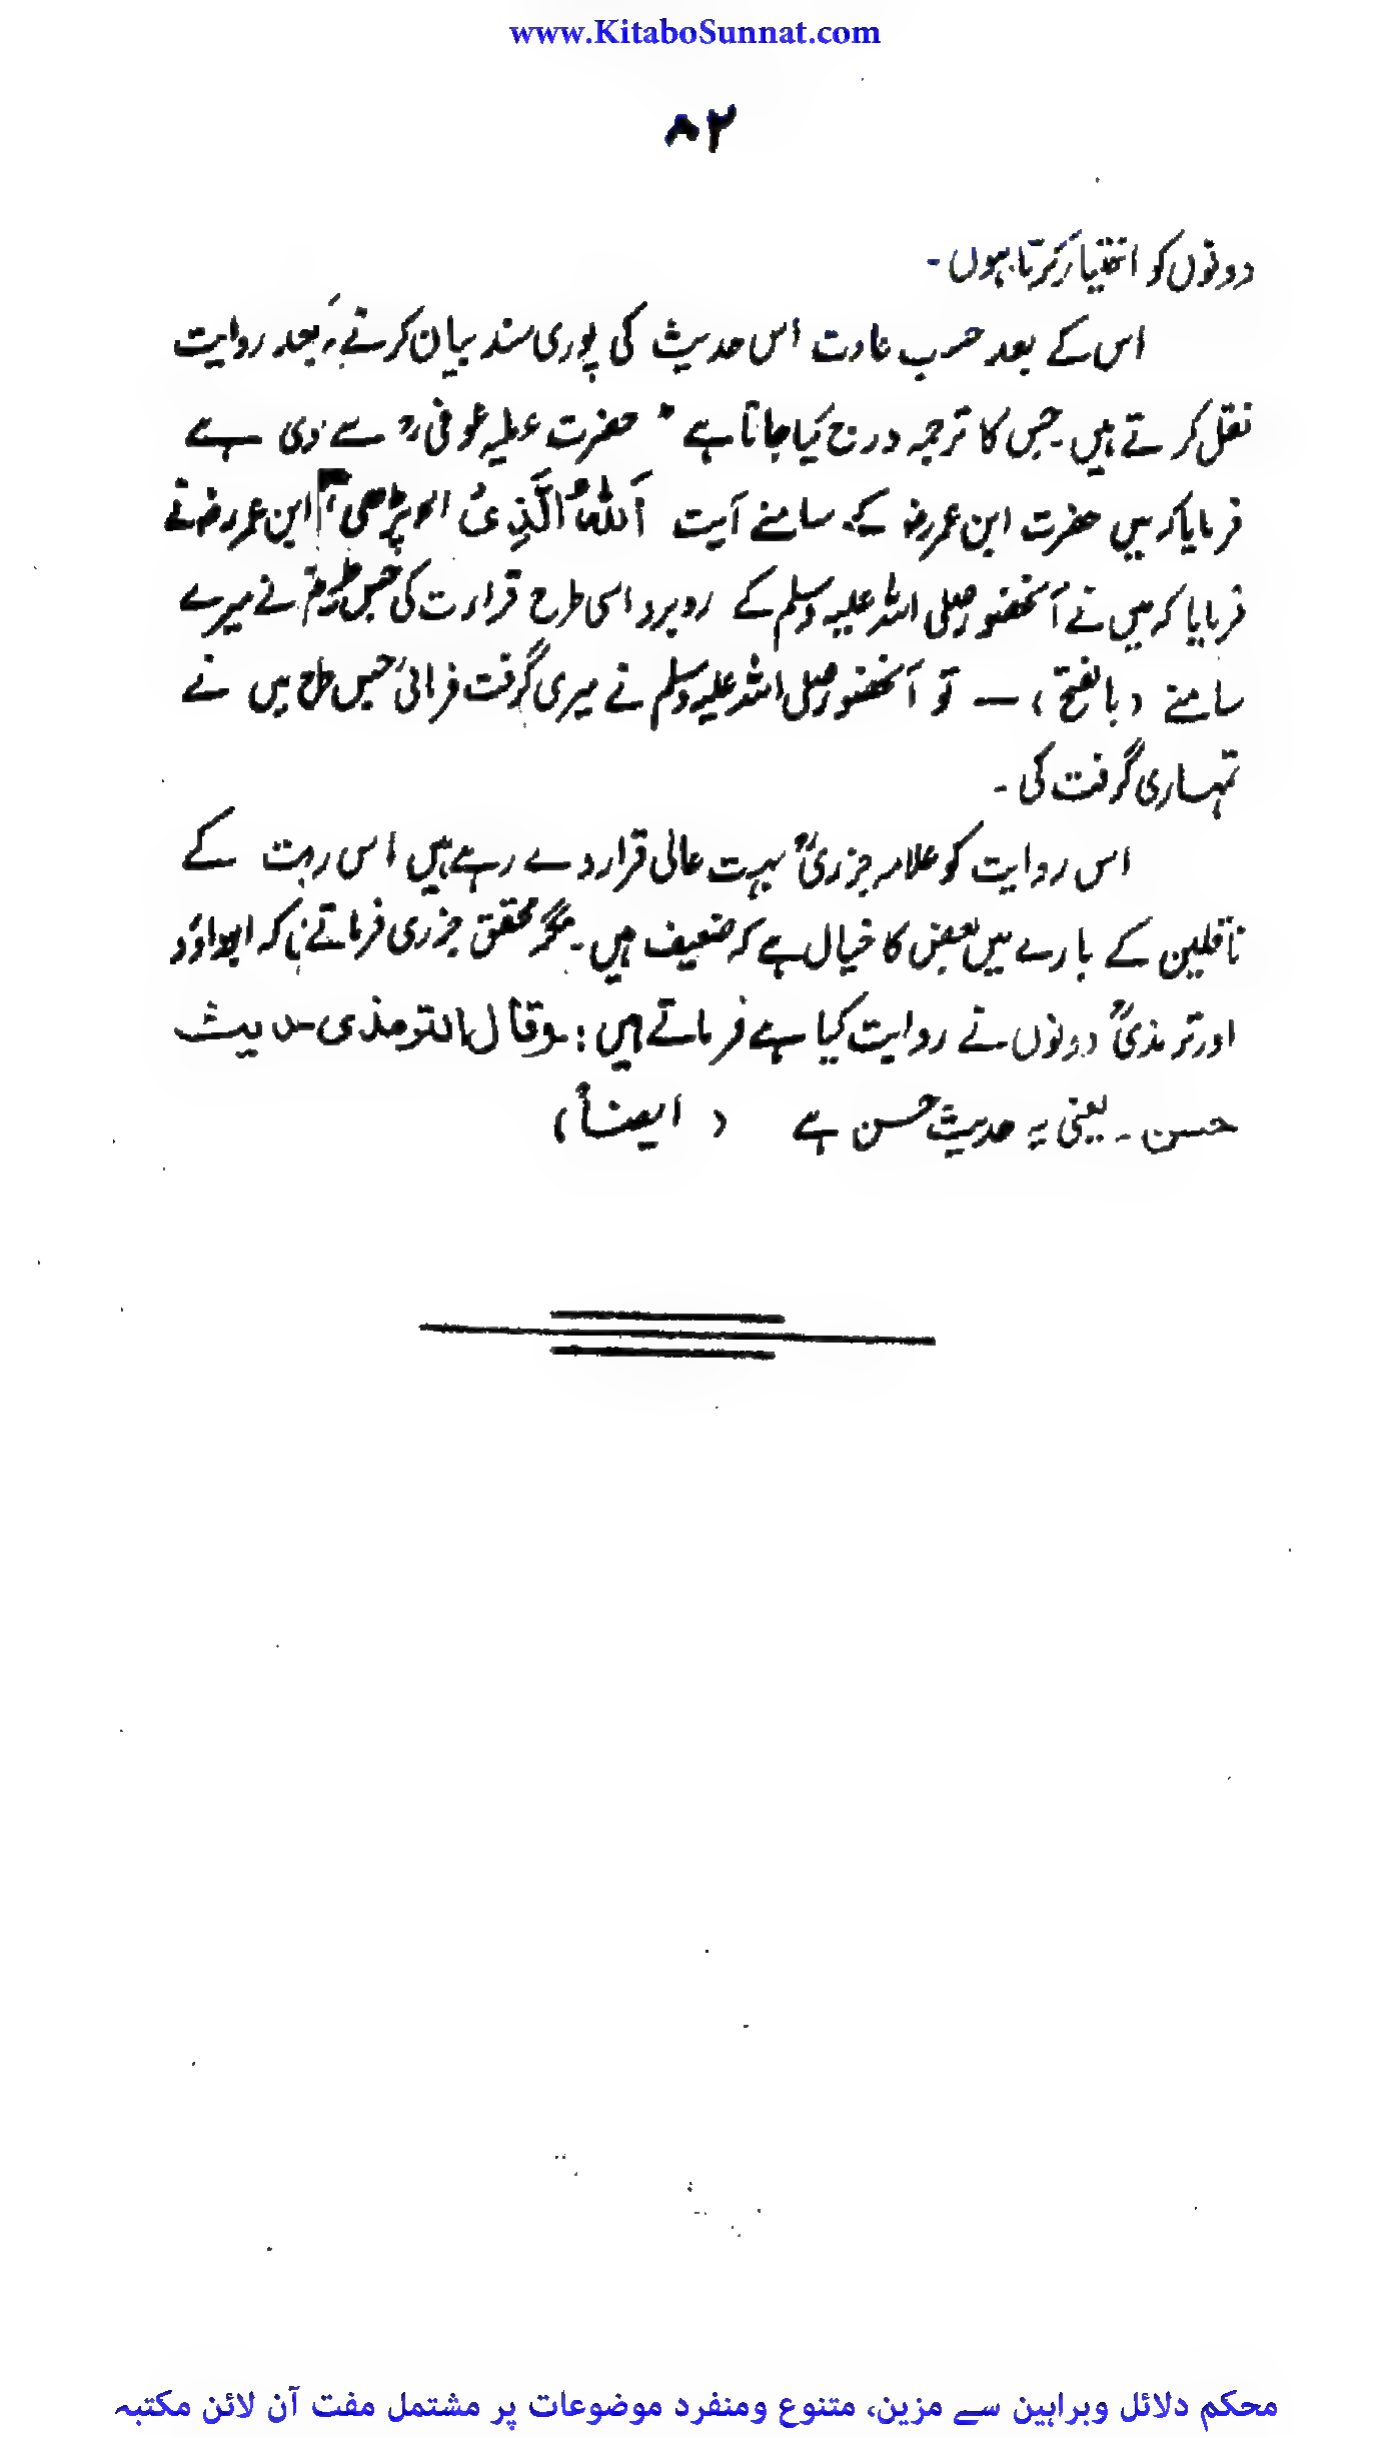 www.KitaboSunnat.com
۸۲
دونوں کو اختیار کرتا ہوں -
اس کے بعد حسب عادت اس حدیث کی پوری سند بیان کرنے کے بعد روایت
نقل کرتے ہیں - جس کا ترجمہ درج کیا جاتا ہے " حضرت عطیہ عوفی رح سے مروی ہے
فرمایا کہ میں حضرت ابن عمر رض کے سامنے آیت اَللّٰهُ الَّذِیْ الخ پڑھی، ابن عمر رض نے
فرمایا کہ میں نے آنحضور صلی اللہ علیہ وسلم کے روبرو اسی طرح قراءت کی جس طرح تم نے میرے
سامنے (بالفتح) — تو آنحضور صلی اللہ علیہ وسلم نے میری گرفت فرمائی جس طرح میں نے
تمہاری گرفت کی -
اس روایت کو علامہ جزریؒ بہت عالی قرار دے رہے ہیں اس روایت کے
ناقلین کے بارے میں بعض کا خیال ہے کہ ضعیف ہیں - مگر محقق جزری فرماتے ہیں کہ ابوداؤد
اور ترمذیؒ دونوں نے روایت کیا ہے فرماتے ہیں : وقال الترمذی حدیث
حسن - یعنی یہ حدیث حسن ہے ( ایضاً )
محکم دلائل وبراہین سے مزین، متنوع ومنفرد موضوعات پر مشتمل مفت آن لائن مکتبہ